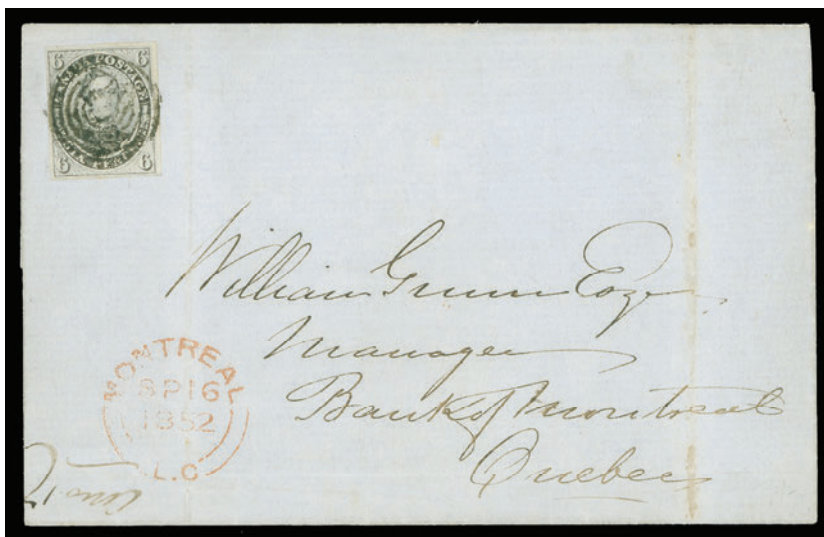 6 6
CANADA POSTAGE
SIX PENCE
6 6
William Gunn Esqr
Manager
Bank of Montreal
Quebec
MONTREAL
SP 16
1852
L.C